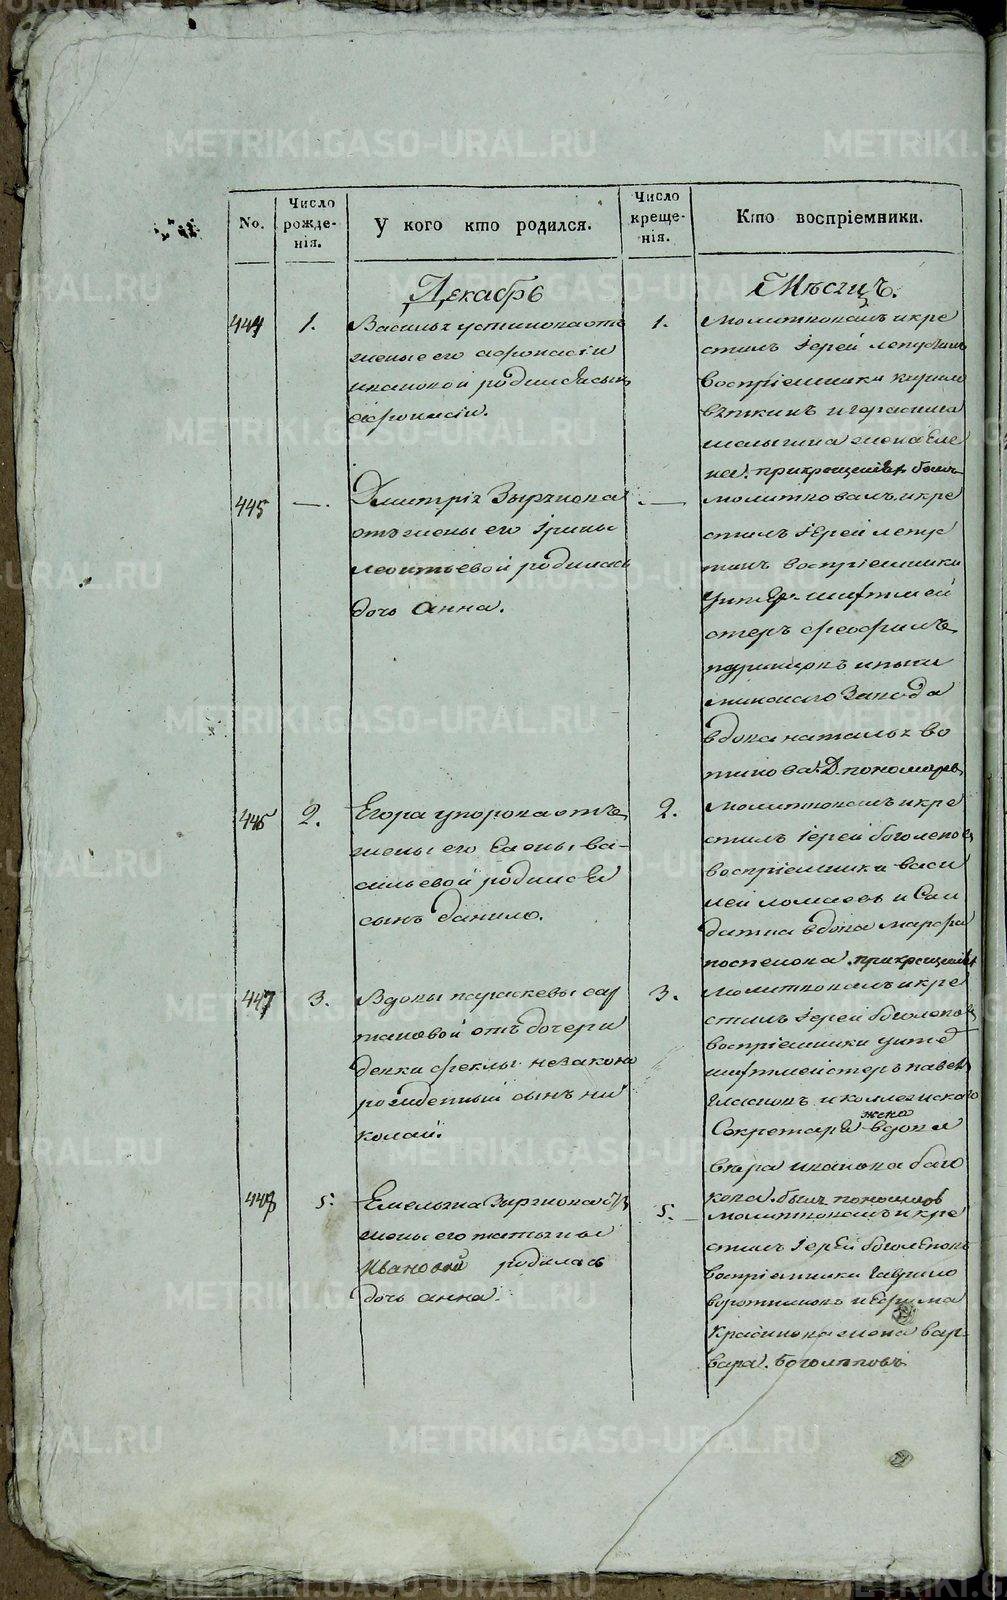 METRIKI.GASO-URAL.RU
No.
Число рожде-нія.
У кого кто родился.
Число креще-нія.
Кто воспріемники.
Декабрь
Мѣсяцъ.
444
1.
Василья устинова отъ
жены его афонасіи
ивановой родился сынъ
афонасій.
1.
Молитвовалъ и кре
стилъ іерей
воспріемники кирило
вяткинъ и герасима
малыгина жена Еле
на. при крещеніи былъ
445
—.
Дмитрія Зырянова
отъ жены его Ирины
леонтьевой родилась
дочь Анна.
—
молитвовалъ и кре
стилъ іерей
воспріемники
Унтеръ шихтмей
стеръ феофилъ
и пыш
минскаго Завода
вдова наталья во
тинова. Д. пономаревъ
446
2.
Егора упорова отъ
жены его Елены ва-
сильевой родился
сынъ данило.
2.
Молитвовалъ и кре
стилъ іерей боголеповъ
воспріемники васи
лей и Сол
датка вдова марфа
поспелова. при крещеніи
447
3.
Вдовы параскевы сар
тановой отъ дочери
девки феклы незаконо
рожденный сынъ ни
колай.
3.
Молитвовалъ и кре
стилъ іерей боголеповъ
воспріемники унтеръ
шихтмейстеръ павелъ
и коллежскаго
жена
Секретаря вдова
вера иванова
былъ пономаревъ
448
5.
Емельяна Зырянова отъ
жены его татьяны
Ивановой родилась
дочь анна.
5.
молитвовалъ и кре
стилъ іерей боголеповъ
воспріемники гаврило
воротниковъ и Ефима
Красикова жена вар-
вара. Боголеповъ